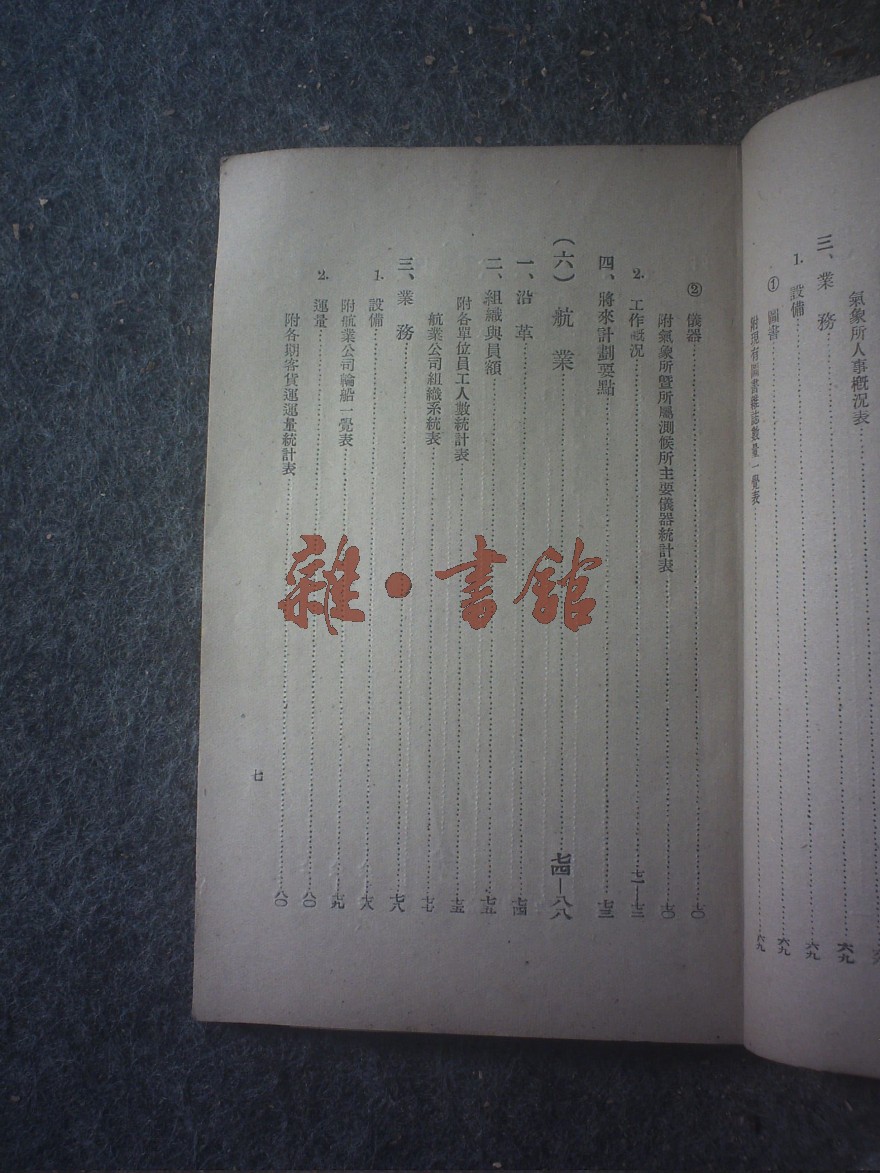 氣象所人事概況表
三、業務 六九
1. 設備 六九
① 圖書 六九
附現有圖書雜誌數量一覽表 六九
② 儀器 七〇
附氣象所暨所屬測候所主要儀器統計表 七〇
2. 工作概況 七一—七三
四、將來計劃要點 七三
(六) 航業 七四—八八
一、沿革 七四
二、組織與員額 七五
附各單位員工人數統計表 七五
航業公司組織系統表 七七
三、業務 七八
1. 設備 七八
附航業公司輪船一覽表 七九
2. 運量 八〇
附各期客貨運運量統計表 八〇
七
雜·書館